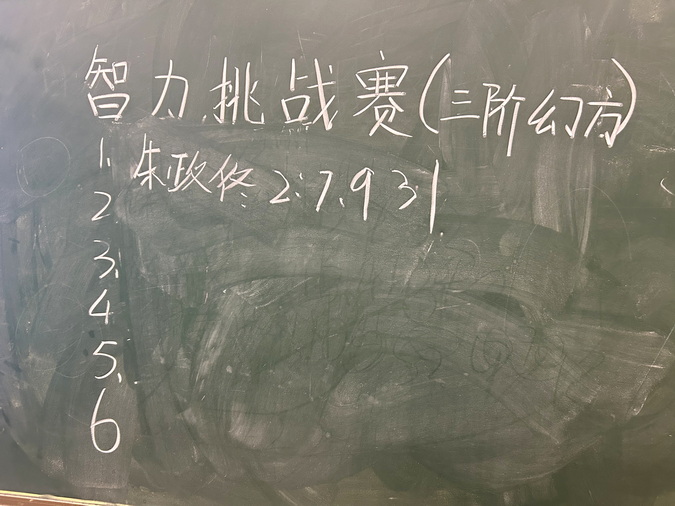 智力挑战赛(三阶幻方)
1. 朱政佟 2:7.9 3.1
2.
3.
4
5.
6